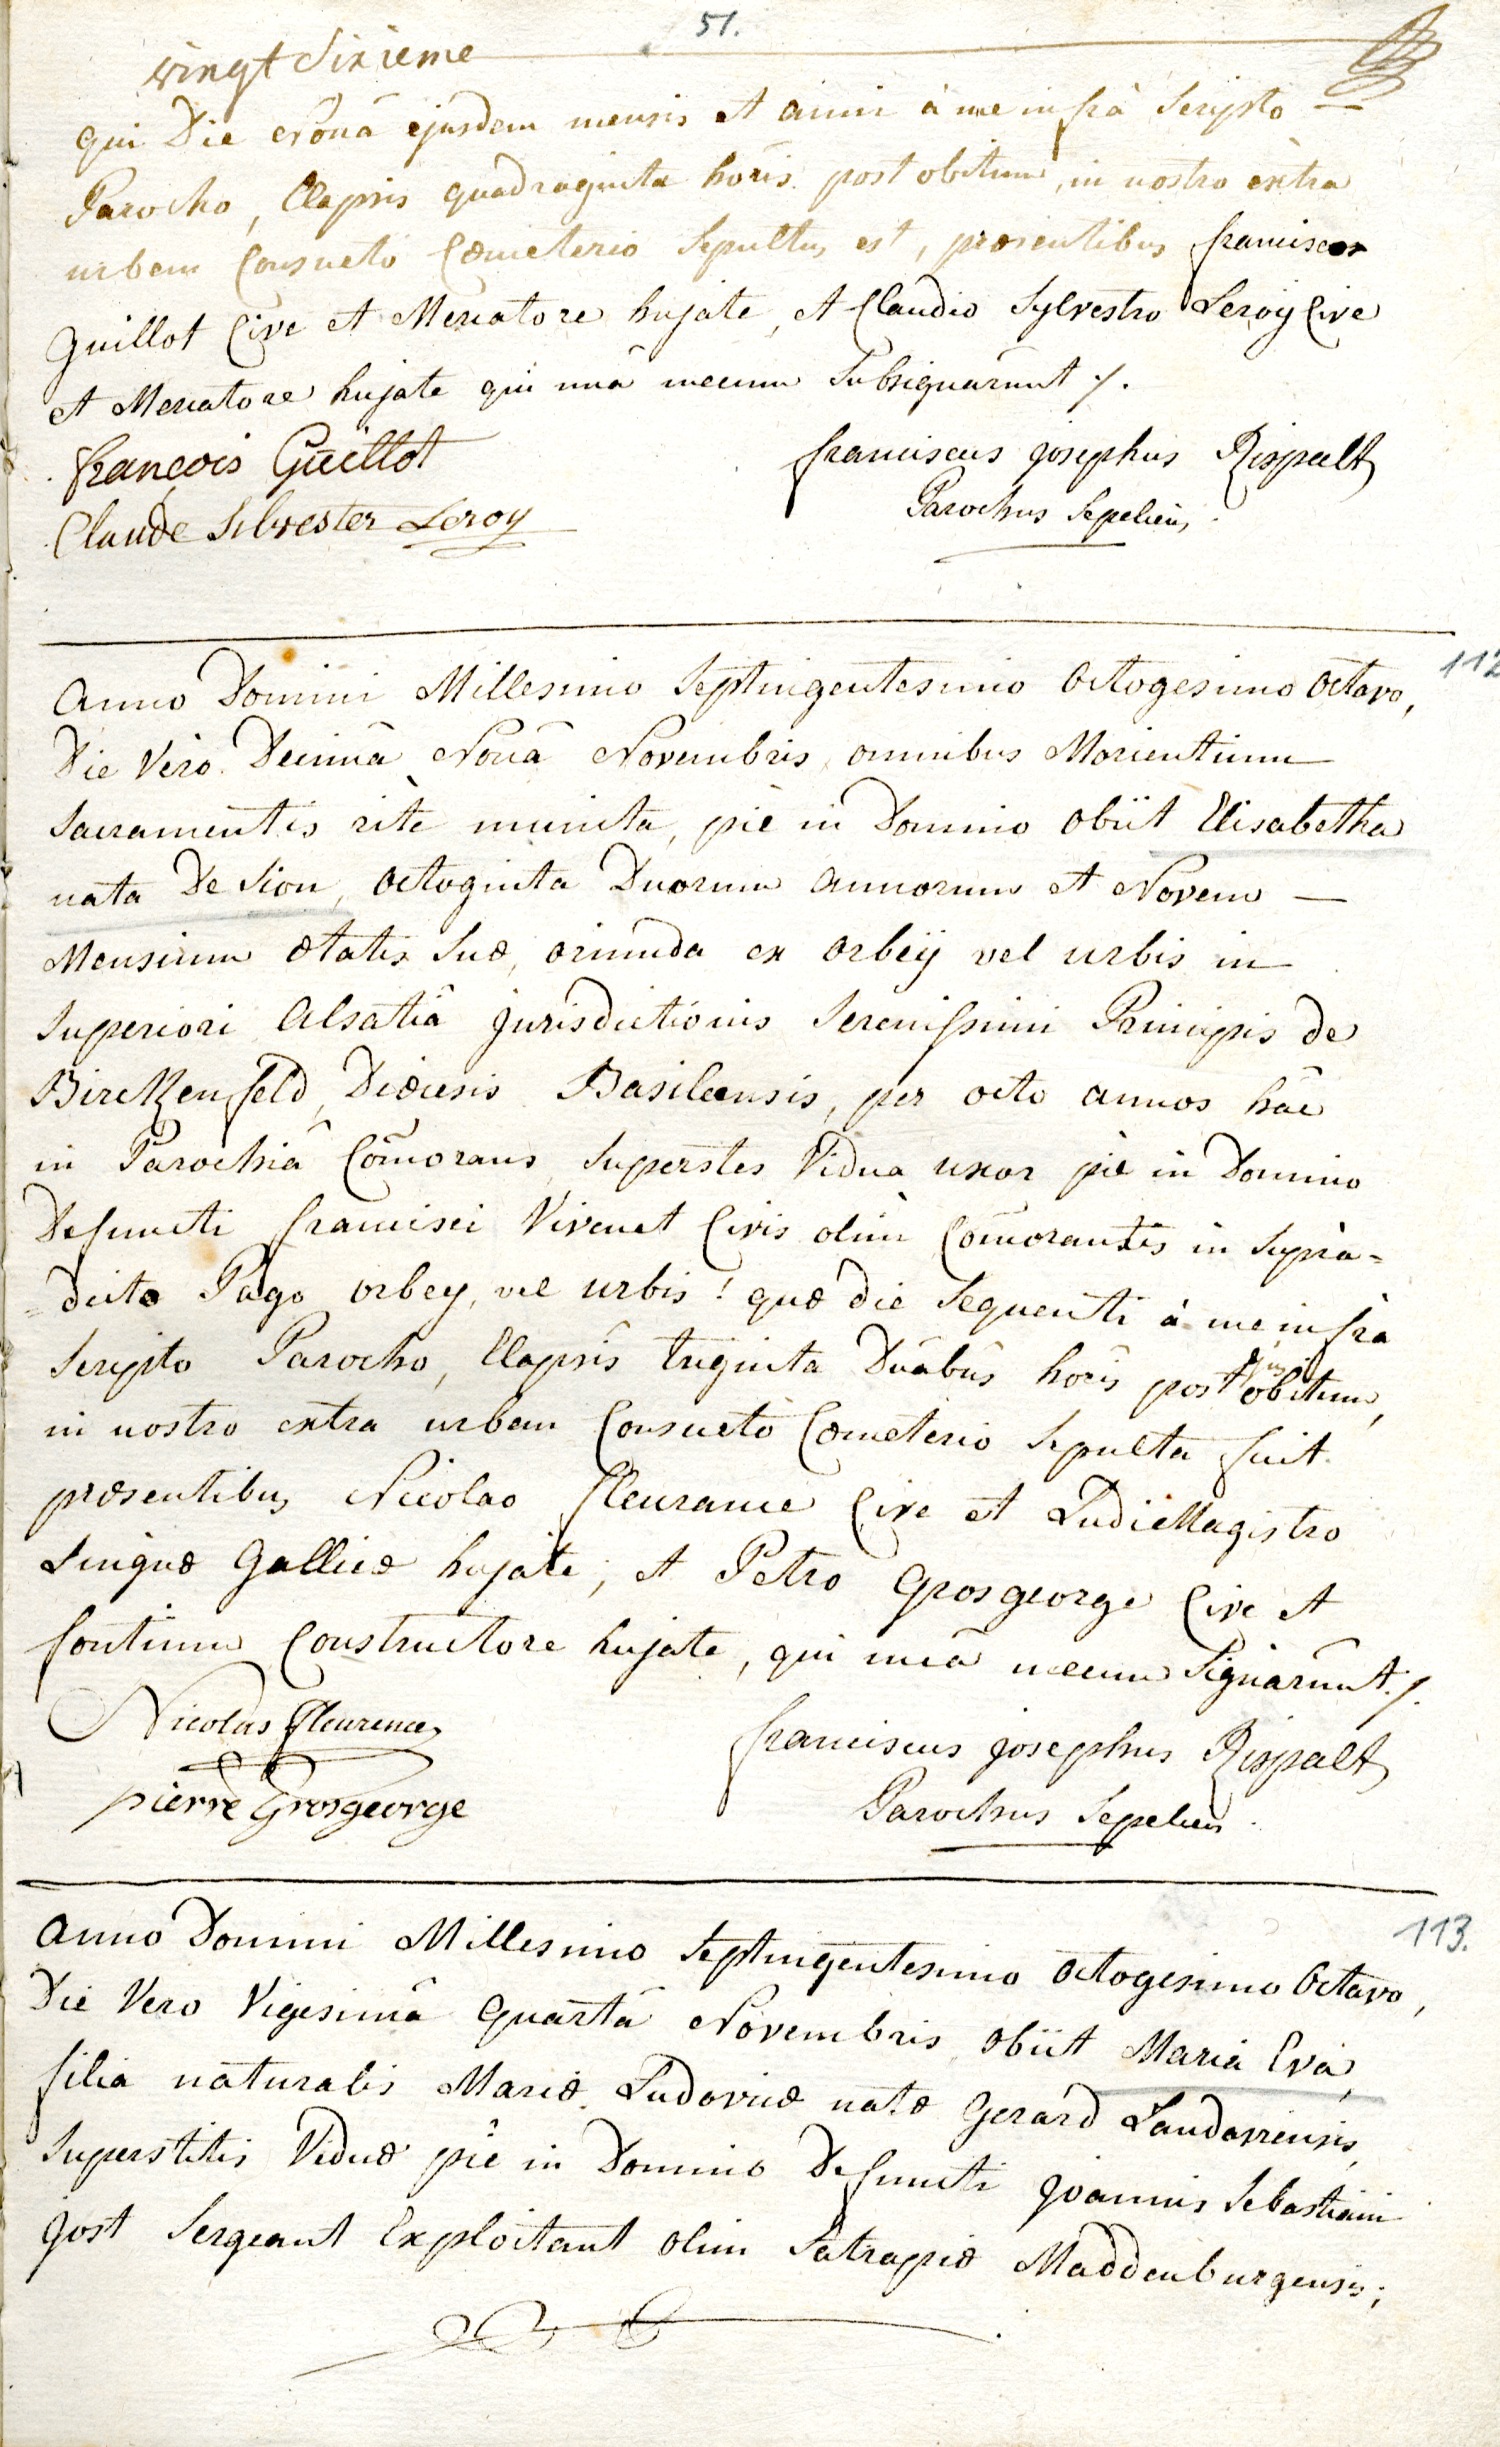 51.
vingt Sixieme
qui Die nona ejusdem mensis et anni à me infrà Scripto
Parocho, Elapsis quadraginta horis post obitum, in nostro extra
urbem Consueto Cœmeterio Sepultus est, præsentibus francisco
Guillot Cive et Mercatore hujate, et Claudio Sylvestro Leroy Cive
et Mercatore hujate qui unà mecum Subsignarunt /.
françois Guillot
franciscus josephus Rispalt
Claude Silvester Leroy
Parochus Sepeliens.
112
Anno Domini Millesimo Septingentesimo Octogesimo Octavo,
Die Vero Decimâ Nonâ Novembris, omnibus Morientium
Sacramentis ritè munita, piè in Domino obiit Elisabetha
nata De Sion, Octoginta Duorum annorum et Novem —
Mensium ætatis Suæ, oriunda ex Orbeÿ vel urbis in
Superiori Alsatiâ jurisdictionis Serenissimi Principis de
Birckenfeld, Diœcesis Basileensis, per octo annos hâc
in Parochiâ Com̃orans, Superstes Vidua uxor piè in Domino
Defuncti francisci Vivenet Civis olim Com̃orantis in Supra=
=dicto Pago orbey, vel urbis! quæ die Sequenti à me infra
Scripto Parocho, Elapsis triginta Duabus horis post ejus obitum,
in nostro extra urbem Consueto Cœmeterio Sepulta fuit.
præsentibus Nicolao fleurance Cive et LudiMagistro
Linguæ Gallicæ hujate, et Petro Grosgeorge Cive et
fontium Constructore hujate, qui unâ mecum Signarunt. /.
Nicolas fleurence
franciscus josephus Rispalt
pierre Grosgeorge
Parochus Sepeliens.
113.
Anno Domini Millesimo Septingentesimo Octogesimo Octavo,
Die Vero Vigesimâ Quartâ Novembris, obiit Maria Eva,
filia naturalis Mariæ Ludovicæ natæ Gerard Landaviensis,
Superstitis Viduæ piè in Domino Defuncti Joannis Sebastiani
Jost Sergeant Exploitant olim Satrapiæ Maddenburgensis;